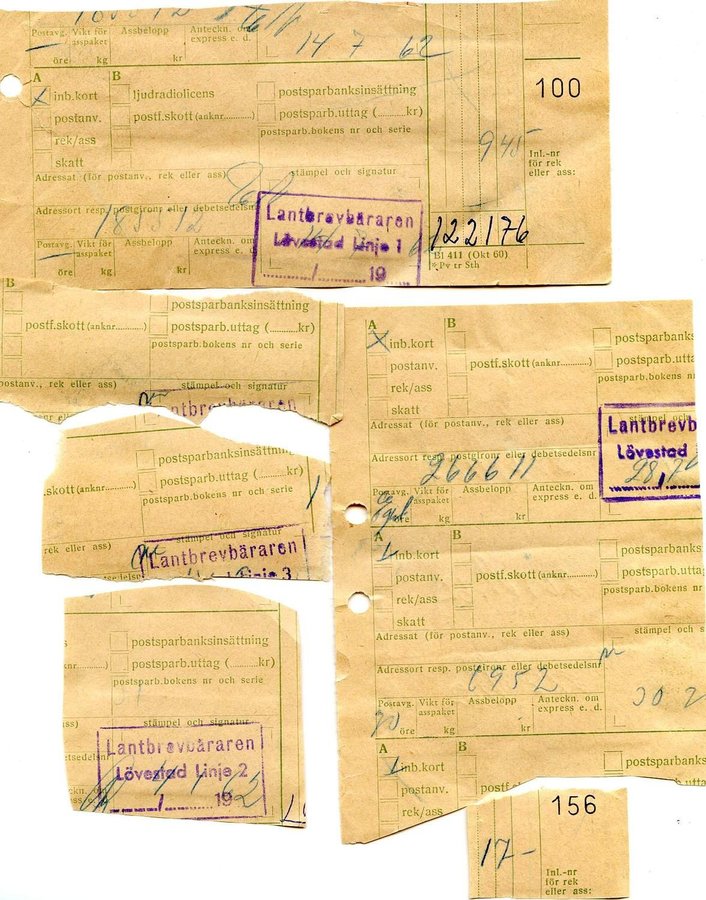 Postavg. Vikt för asspaket Assbelopp Anteckn. om express e. d.
14 7 62
öre kg kr
A B
x inb.kort ljudradiolicens postsparbanksinsättning
100
postanv. postf.skott (anknr..........) postsparb.uttag (..........kr)
rek/ass postsparb.bokens nr och serie
skatt
945
Inl.-nr
för rek
eller ass:
Adressat (för postanv., rek eller ass) stämpel och signatur
Adressort resp. postgironr eller debetsedelsnr
185512
Lantbrevbäraren
Lövestad Linje 1
......./.......19
122176
Postavg. Vikt för asspaket Assbelopp Anteckn. om express e. d.
öre kg kr
Bl 411 (Okt 60)
* Pv tr Sth
B
postsparbanksinsättning
postf.skott (anknr..........) postsparb.uttag (..........kr)
postsparb.bokens nr och serie
postanv., rek eller ass) stämpel och signatur
Lantbrevbäraren
postsparbanksinsättning
.skott (anknr..........) postsparb.uttag (..........kr)
postsparb.bokens nr och serie
rek eller ass) stämpel och signatur
Lantbrevbäraren
Linje 3
postsparbanksinsättning
postsparb.uttag (..........kr)
postsparb.bokens nr och serie
ass) stämpel och signatur
Lantbrevbäraren
Lövestad Linje 2
......./.......1962
A B
x inb.kort postsparbanks
postanv. postf.skott (anknr..........) postsparb.utta
rek/ass postsparb.bokens n
skatt
Adressat (för postanv., rek eller ass) stämpel och
Adressort resp. postgironr eller debetsedelsnr
266611
Lantbrevb
Lövestad
Postavg. Vikt för asspaket Assbelopp Anteckn. om express e. d.
öre kg kr
A B
inb.kort postsparbanks
postanv. postf.skott (anknr..........) postsparb.utta
rek/ass postsparb.bokens n
skatt
Adressat (för postanv., rek eller ass) stämpel och s
Adressort resp. postgironr eller debetsedelsnr
6952
Postavg. Vikt för asspaket Assbelopp Anteckn. om express e. d.
20 öre kg kr
A B
inb.kort postsparbanks
postanv. postf
rek/ass
156
17-
Inl.-nr
för rek
eller ass: